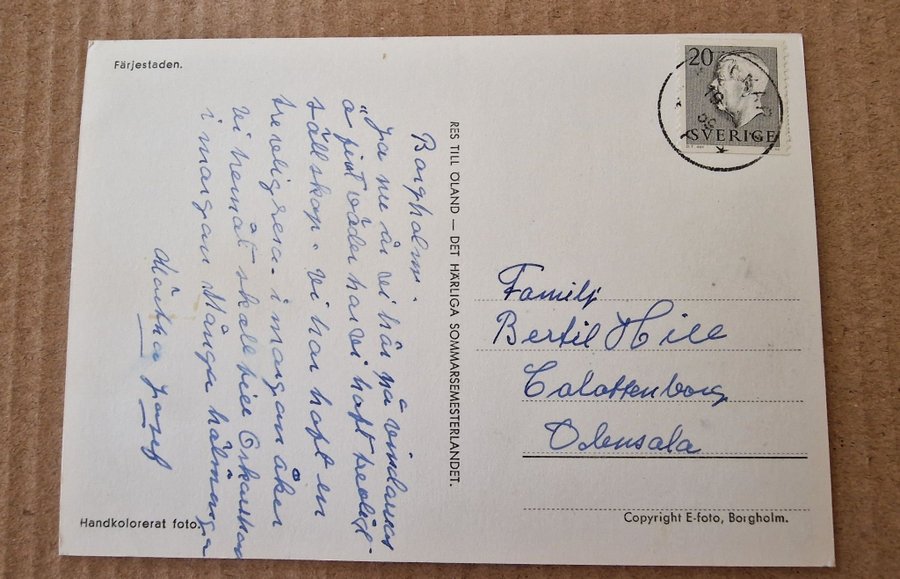 Färjestaden.
20
SVERIGE
Borgholm.
Ja nu är vi här på vindarnas
ö fint väder har vi haft trevlig-
sällskap. Vi har haft en
trevlig resa. i morgon åker
vi hemåt skall till
i morgon Många hälninga
Märtha Josef
RES TILL ÖLAND — DET HÄRLIGA SOMMARSEMESTERLANDET.
Familj
Bertil Hill
Odensala
Handkolorerat foto.
Copyright E-foto, Borgholm.